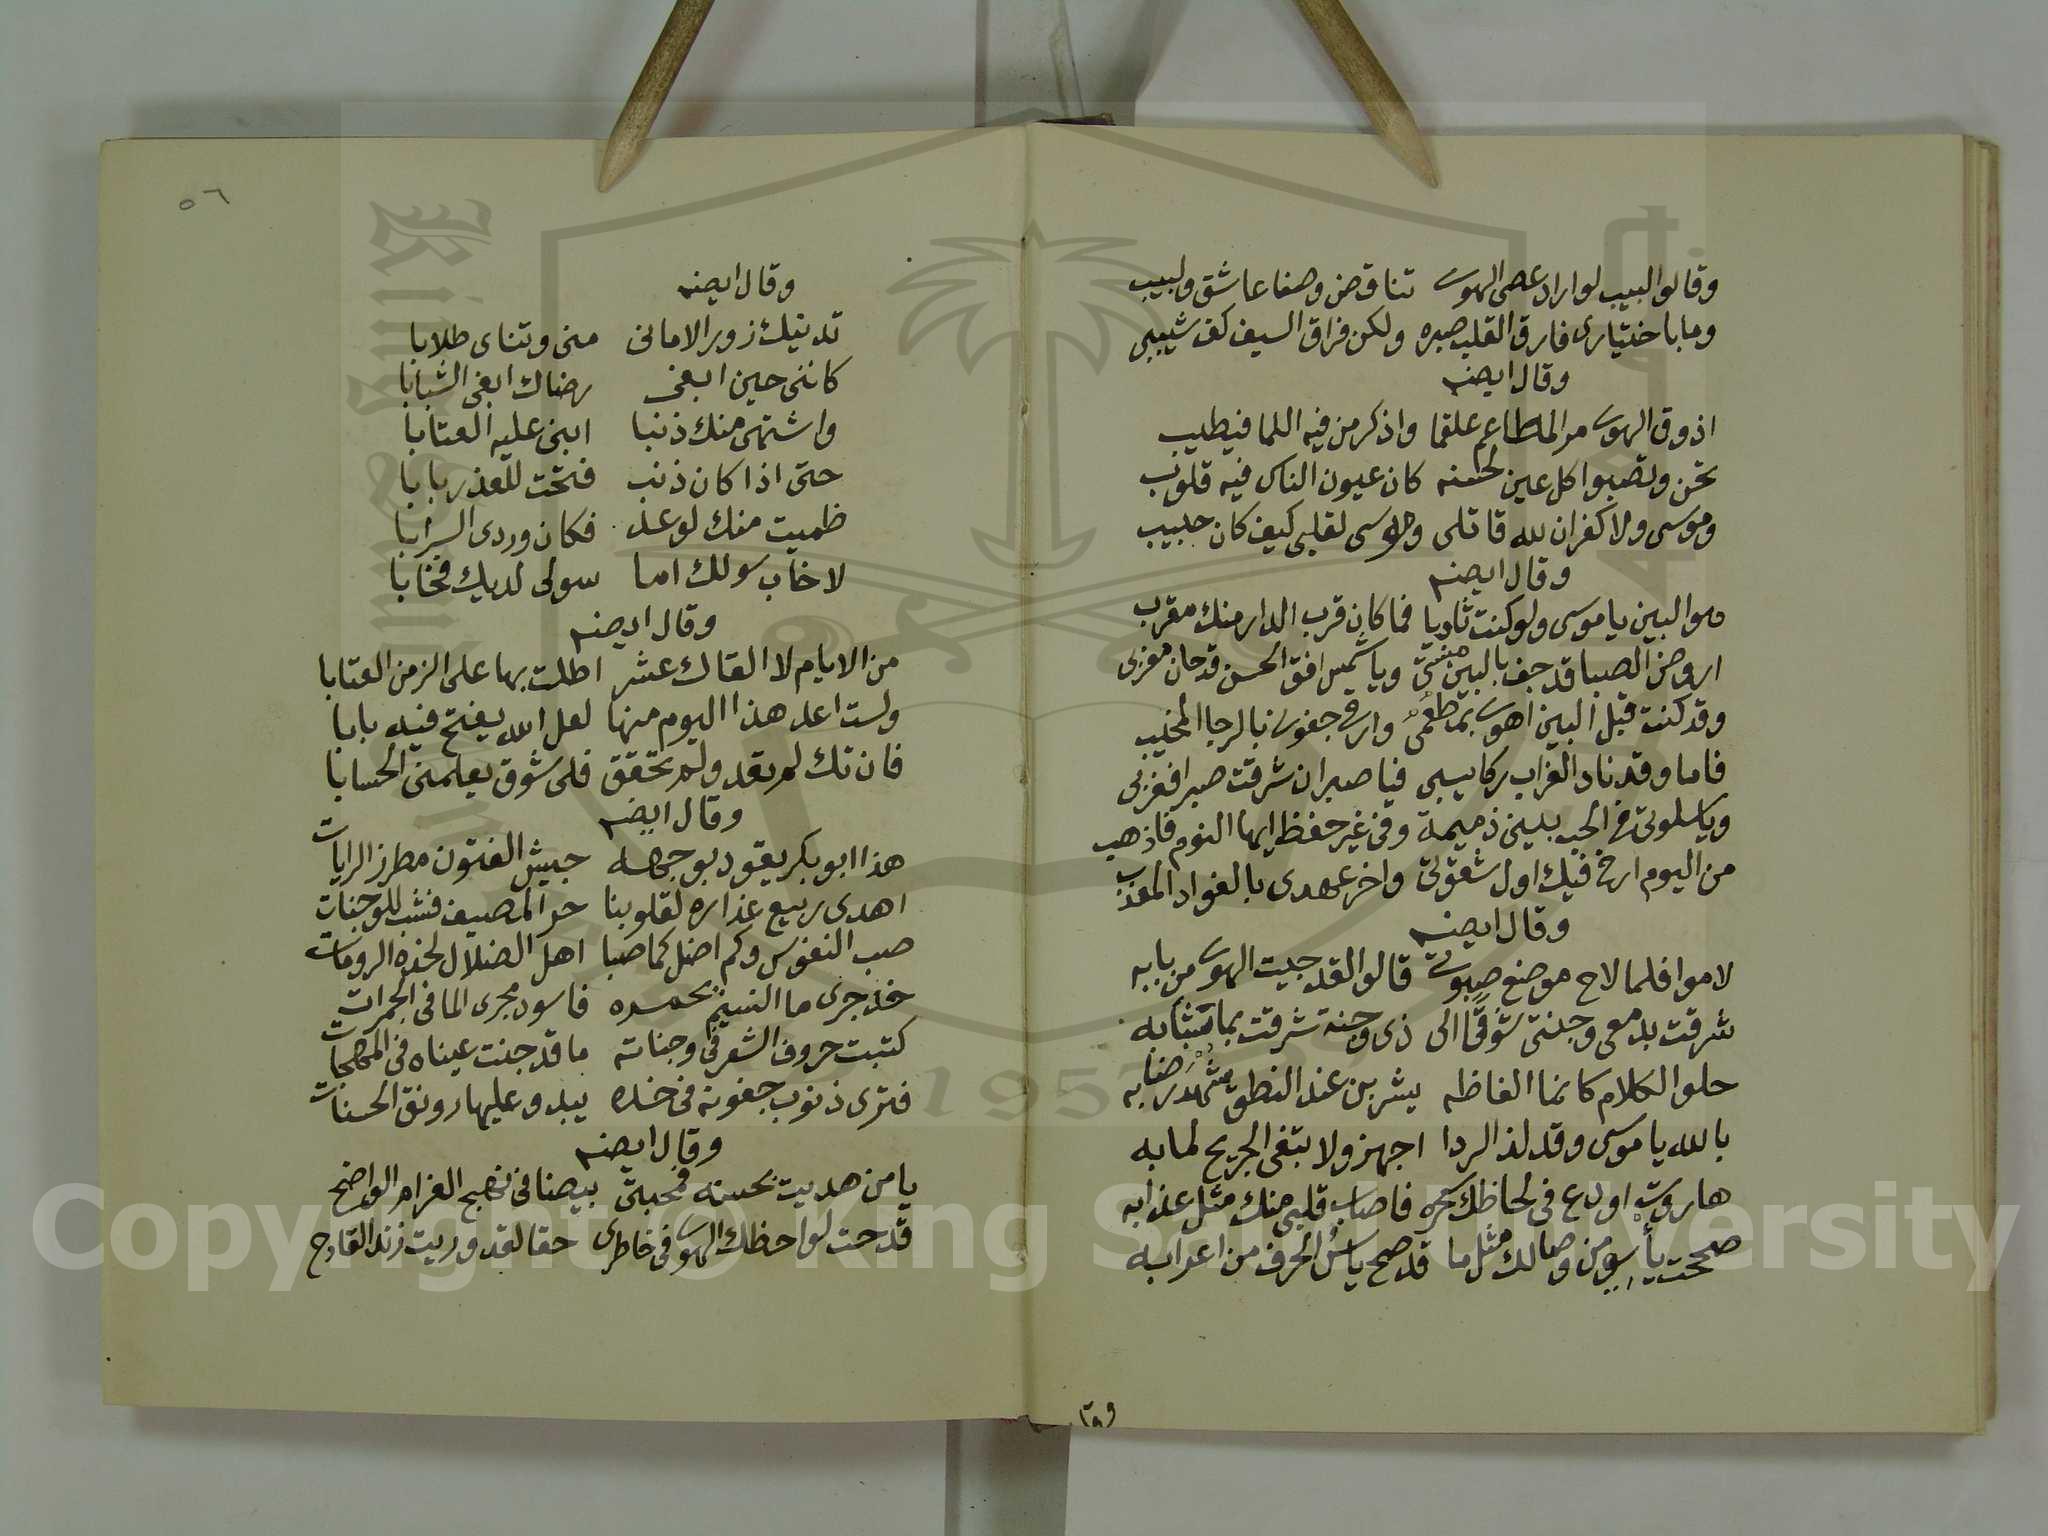 وقالوا لبيب لو اراد عصى الهوى تناقض وصفا عاشق ولبيب
وما باختيارى فارق القلب صبره ولكن فراق السيف كف شبيب
وقال ايضه
اذوق الهوى مر المطاعم علقما واذكر من فيه اللما فيطيب
تحن وتصبوا كل عين لحسنه كان عيون الناس فيه قلوب
وموسى ولا كفران لله قاتلى وموسى لقلبى كيف كان حبيب
وقال ايضه
هو البين يا موسى ولو كنت ثاويا فما كان قرب الدار منك مقرب
اروض الصبا قد جف بالبين منبتى ويا شمس افق الحسن قد حان مغربى
وقد كنت قبل البين اهوى بمطمعى وارقى جفونى بالرجا المخيب
فاما وقد نادا الغراب ركايبى فيا صبر ان شرقت صبرا فغربى
ويا سلوتى فى الحب بينى ذميمة وفى غير حفظ ايها النوم فاذهب
من اليوم ارخ فيك اول شقوتى واخر عهدى بالفواد المعذب
وقال ايضه
لاموا فلما لاح موضع صبوتى قالوا لقد جيت الهوى من بابه
شرقت بدمعى وجنتى شوقا الى ذى وجنة شرقت بما شبابه
حلو الكلام كانما الفاظه يشربن عند النطق شهد رضابه
بالله يا موسى وقد لذ الردا اجهز ولا تبقى الجريح لما به
هاروت اودع فى لحاظك سحره فاصاب قلبى منك مثل عذابه
صححت ياسى من وصالك مثل ما قد صح ياس الحرف من اعرابه
وقا
٥٦
وقال ايضه
تدنيك زور الامانى منى وتناى طلابا
كاننى حين ابغى رضاك ابغى الشبابا
واشتهى منك ذنبا ابنى عليه العتابا
حتى اذا كان ذنب فتحت للعذر بابا
ظميت منك لوعد فكان وردى السرابا
لا خاب سولك اما سولى لديك فخابا
وقال ايضه
من الايام لا القاك عشر اطلت بها على الزمن العتابا
ولست اعد هذا اليوم منها لعل الله يفتح فيه بابا
فان تك لم تعد ولم تحقق فلى شوق يعلمنى الحسابا
وقال ايضه
هذا ابو بكر يقود بوجهه جيش الفتون مطرز الرايات
اهدى ربيع عذاره لقلوبنا حر المصيف فشب للوجنات
صب النفوس وكم اضل كما صبا اهل الضلال لخده الرومات
خد جرى ما النعيم بجمره فاسود مجرى الما فى الجمرات
كتبت حروف الشعر فى وجناته ما قد جنت عيناه فى المهجات
فترى ذنوب جفونه فى خده يبدو عليها رونق الحسنات
وقال ايضه
يا من هديت بحسنه فمحبتى بيضا فى نهج الغرام الواضح
قدحت لواحظك الهوى فى خاطرى حقا لقد وريت زند القادح
Copyright © King Saud University
1957